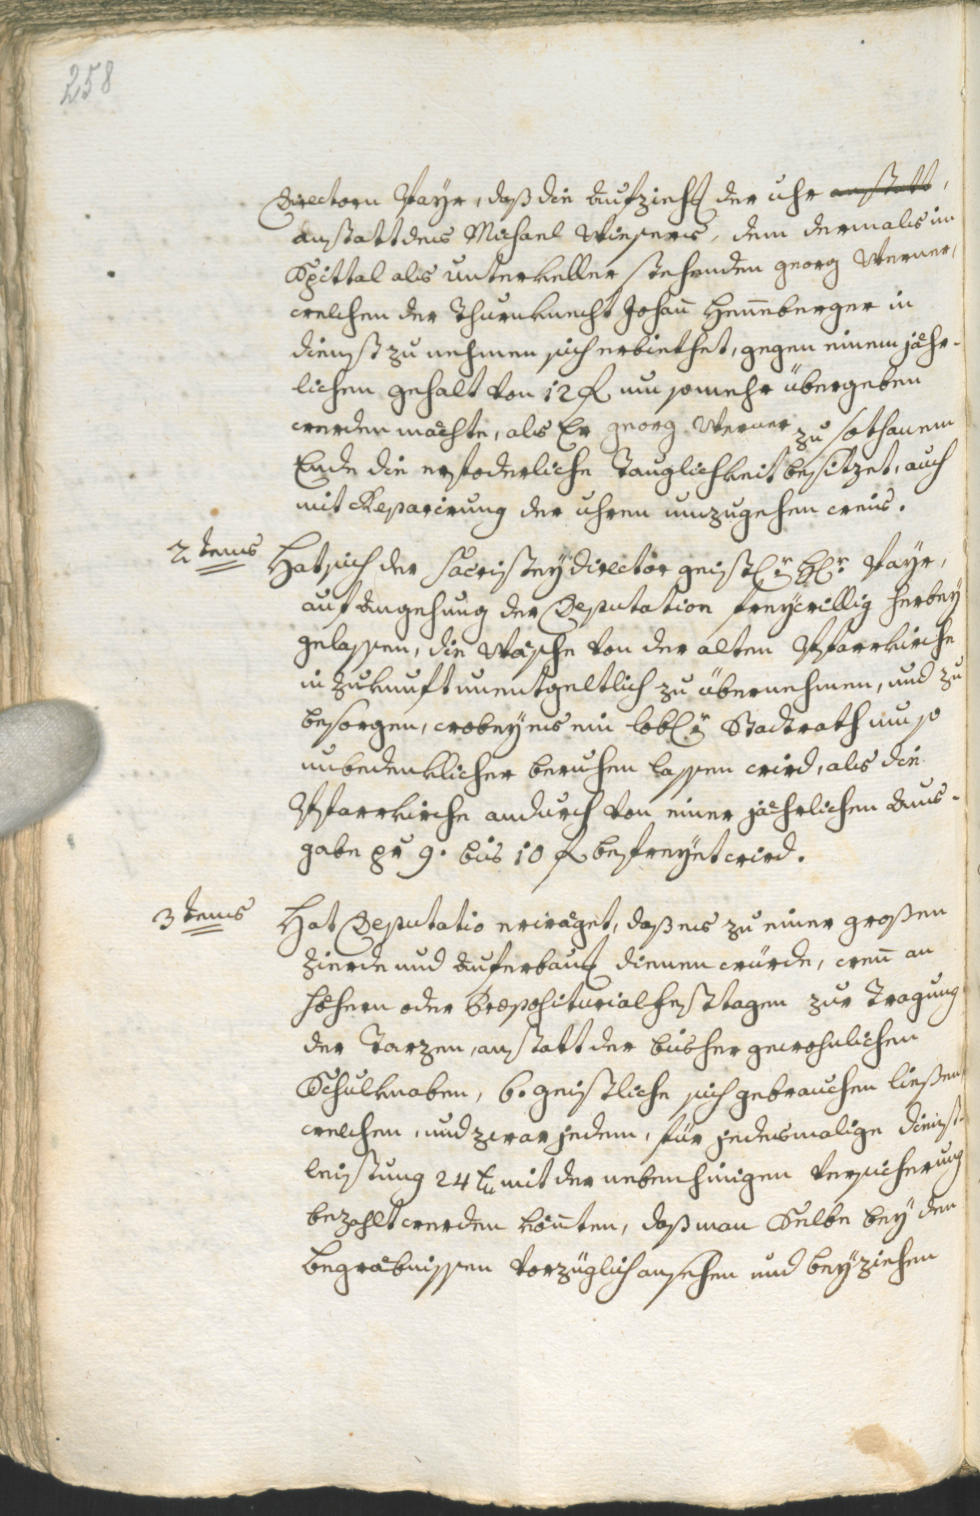 258
Directorn Payr, daß die aufzieh(un)g der uhr anstatt,
anstatt des Michael Wiesers, dem dermals im
Spittal als Unterkeller stehenden georg Werner,
welchen der Thurnknecht Johan̄ Hen̄eberger in
dienst zu nehmen sich erbiethet, gegen einem jähr-
lichen gehalt von 12 f um somehr übergeben
werden möchte, als Er georg Werner zu sothanem
Ende die erfoderliche Tauglichkeit besitzet, auch
mit Reparirung der uhren umzugehen weis.
2tens Hat sich der Sacristeydirector geistl: H: Payr,
auf angehung der Deputation freywillig herbey
gelassen, die Wäsche von der alten Pfarrkirche
in zukunft unentgeltlich zu übernehmen, und zu
besorgen, wobey es ein löbl: Stadtrath um so
unbedenklicher beruhen lassen wird, als die
Pfarrkirche andurch von einer jährlichen aus-
gabe pr 9. bis 10 f befreyet wird.
3tens Hat Deputatio erwäget, daß es zu einer großen
zierde und auferbau(un)g dienen würde, wen̄ an
höhern oder Præpositurialfesttagen zur Tragung
der Tarzen, anstatt der bisher gewohnlichen
Schulknaben, 6. geistliche sich gebrauchen ließen,
welchen, und zwar jedem, für jedesmalige dienst-
leistung 24 x mit der nebenhinigen Versicherung
bezahlt werden kön̄ten, daß man Selbe bey den
begräbnissen vorzüglich ansehen und beyziehen